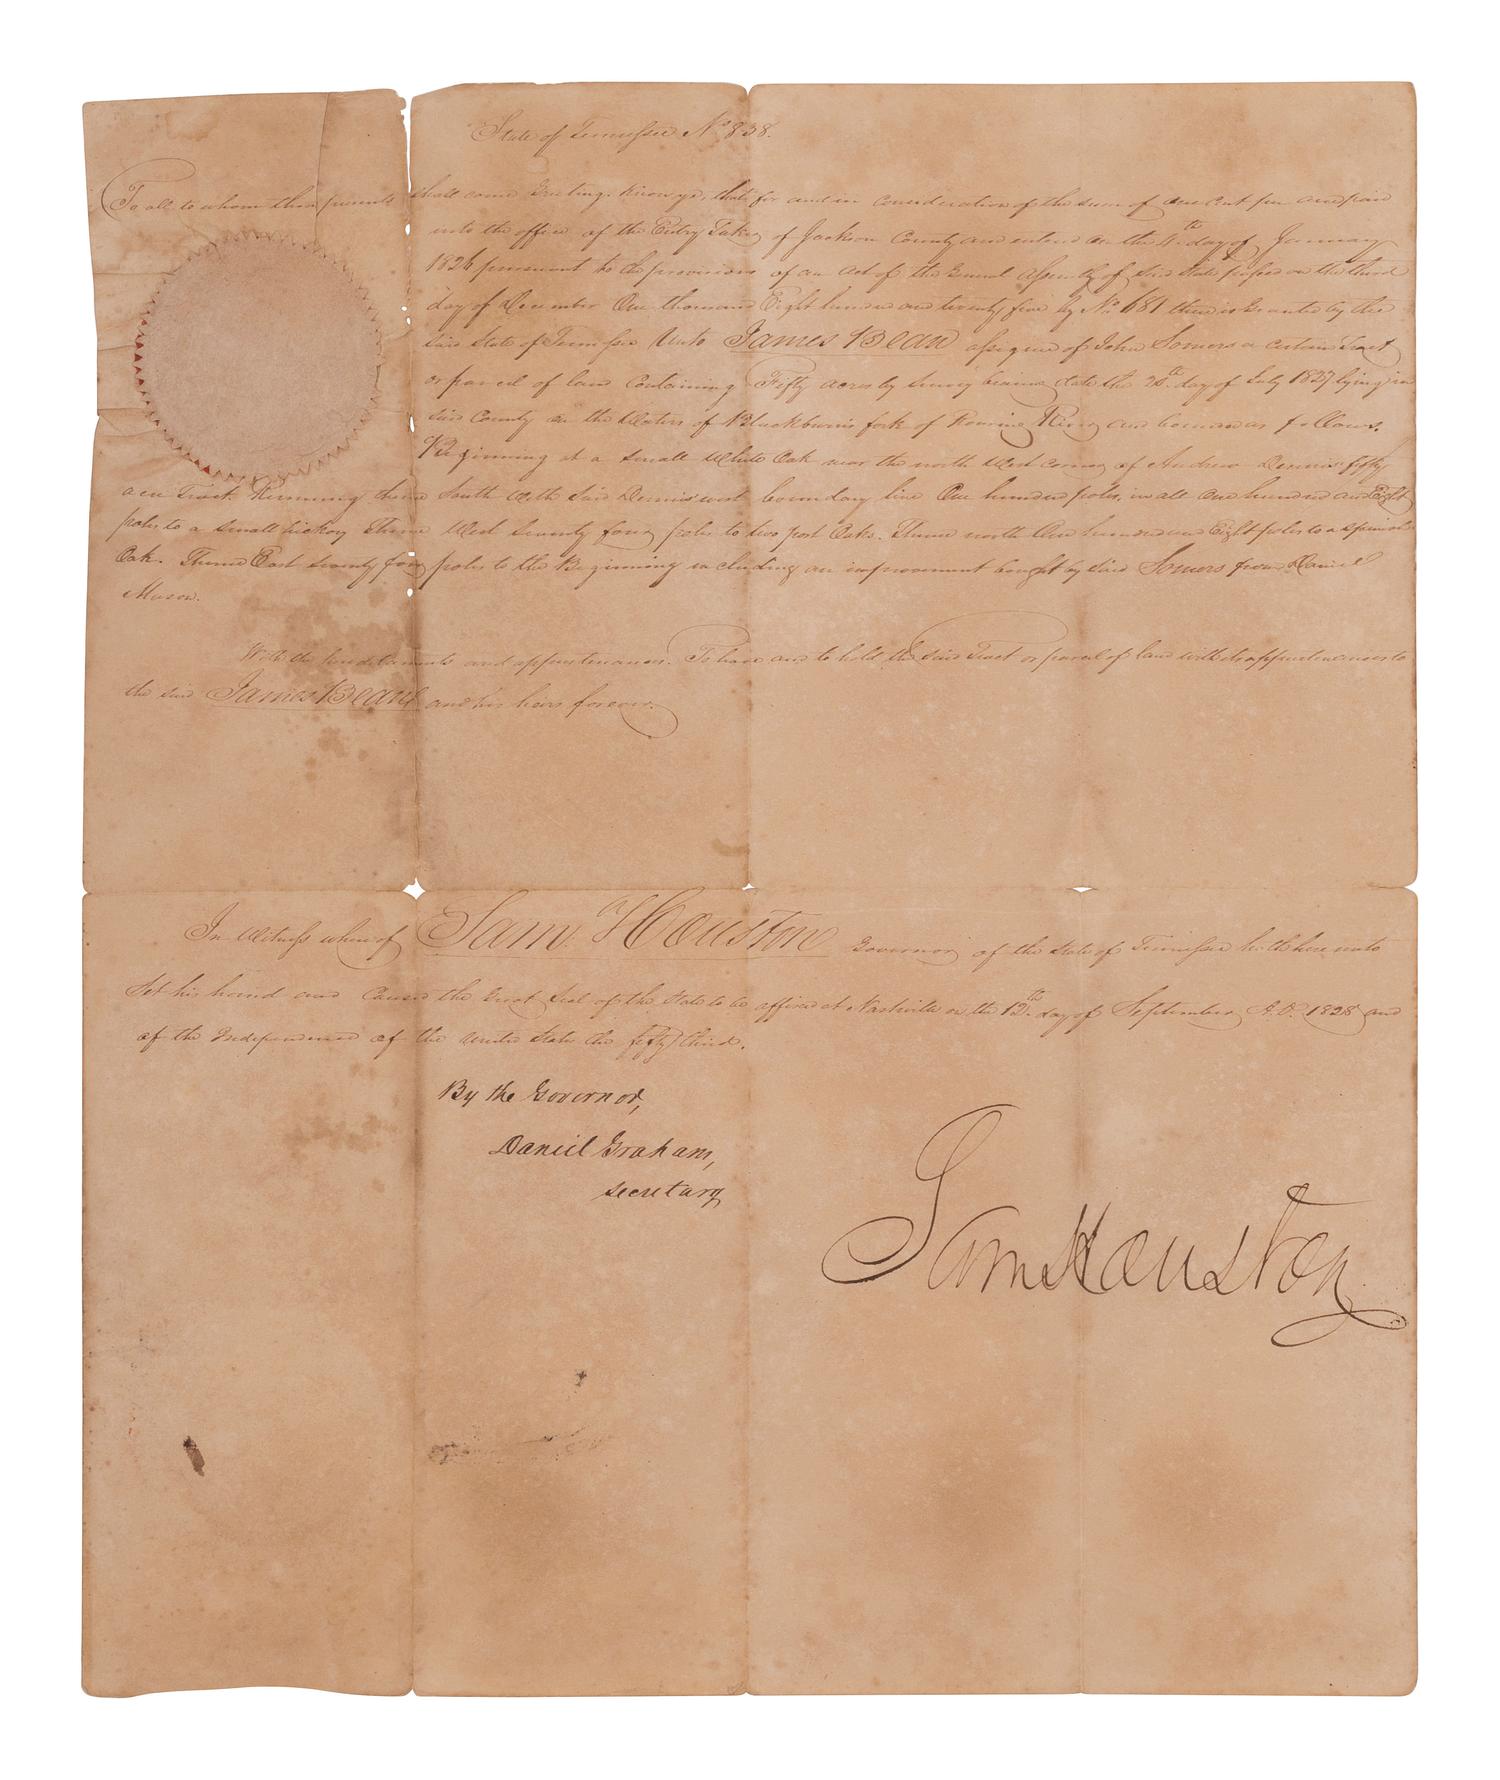 State of Tennessee No 838.
To all to whom these presents shall come Greeting. Know ye, that for and in consideration of the sum of one cent per acre paid
into the office of the Entry Taker of Jackson County and entered on the 4th day of January
1826 pursuant to the provisions of an act of the General assembly of said State passed on the third
day of December One thousand Eight hundred and twenty five by No 681 there is Granted by the
said State of Tennessee Unto James Bean assignee of John Somers a certain Tract
or parcel of land Containing Fifty acres by survey bearing date the day of July 1827 lying in
said County on the Waters of Blackburn's fork of Roaring River and bounded as follows.
Beginning at a small White Oak near the north West corner of Andrew Dennis' fifty
acre Tract Running thence South With said Dennis' west boundary line One hundred poles, in all One hundred and Eight
poles to a small hickory Thence West Seventy four poles to two post Oaks. Thence north One hundred and Eight poles to a spanish
Oak. Thence East seventy four poles to the Beginning including an improvement bought by said Somers from Daniel
Mason.
With the hereditaments and appurtenances. To have and to hold the said Tract or parcel of land with its appurtenances to
the said James Bean and his heirs forever.
In Witness whereof Sam. Houston Governor of the State of Tennessee hath hereunto
Set his hand and Caused the Great Seal of the State to be affixed at Nashville on the 12th day of September A.D. 1828 and
of the Independence of the United States the fifty third.
By the Governor,
Daniel Graham,
Secretary
Sam Houston